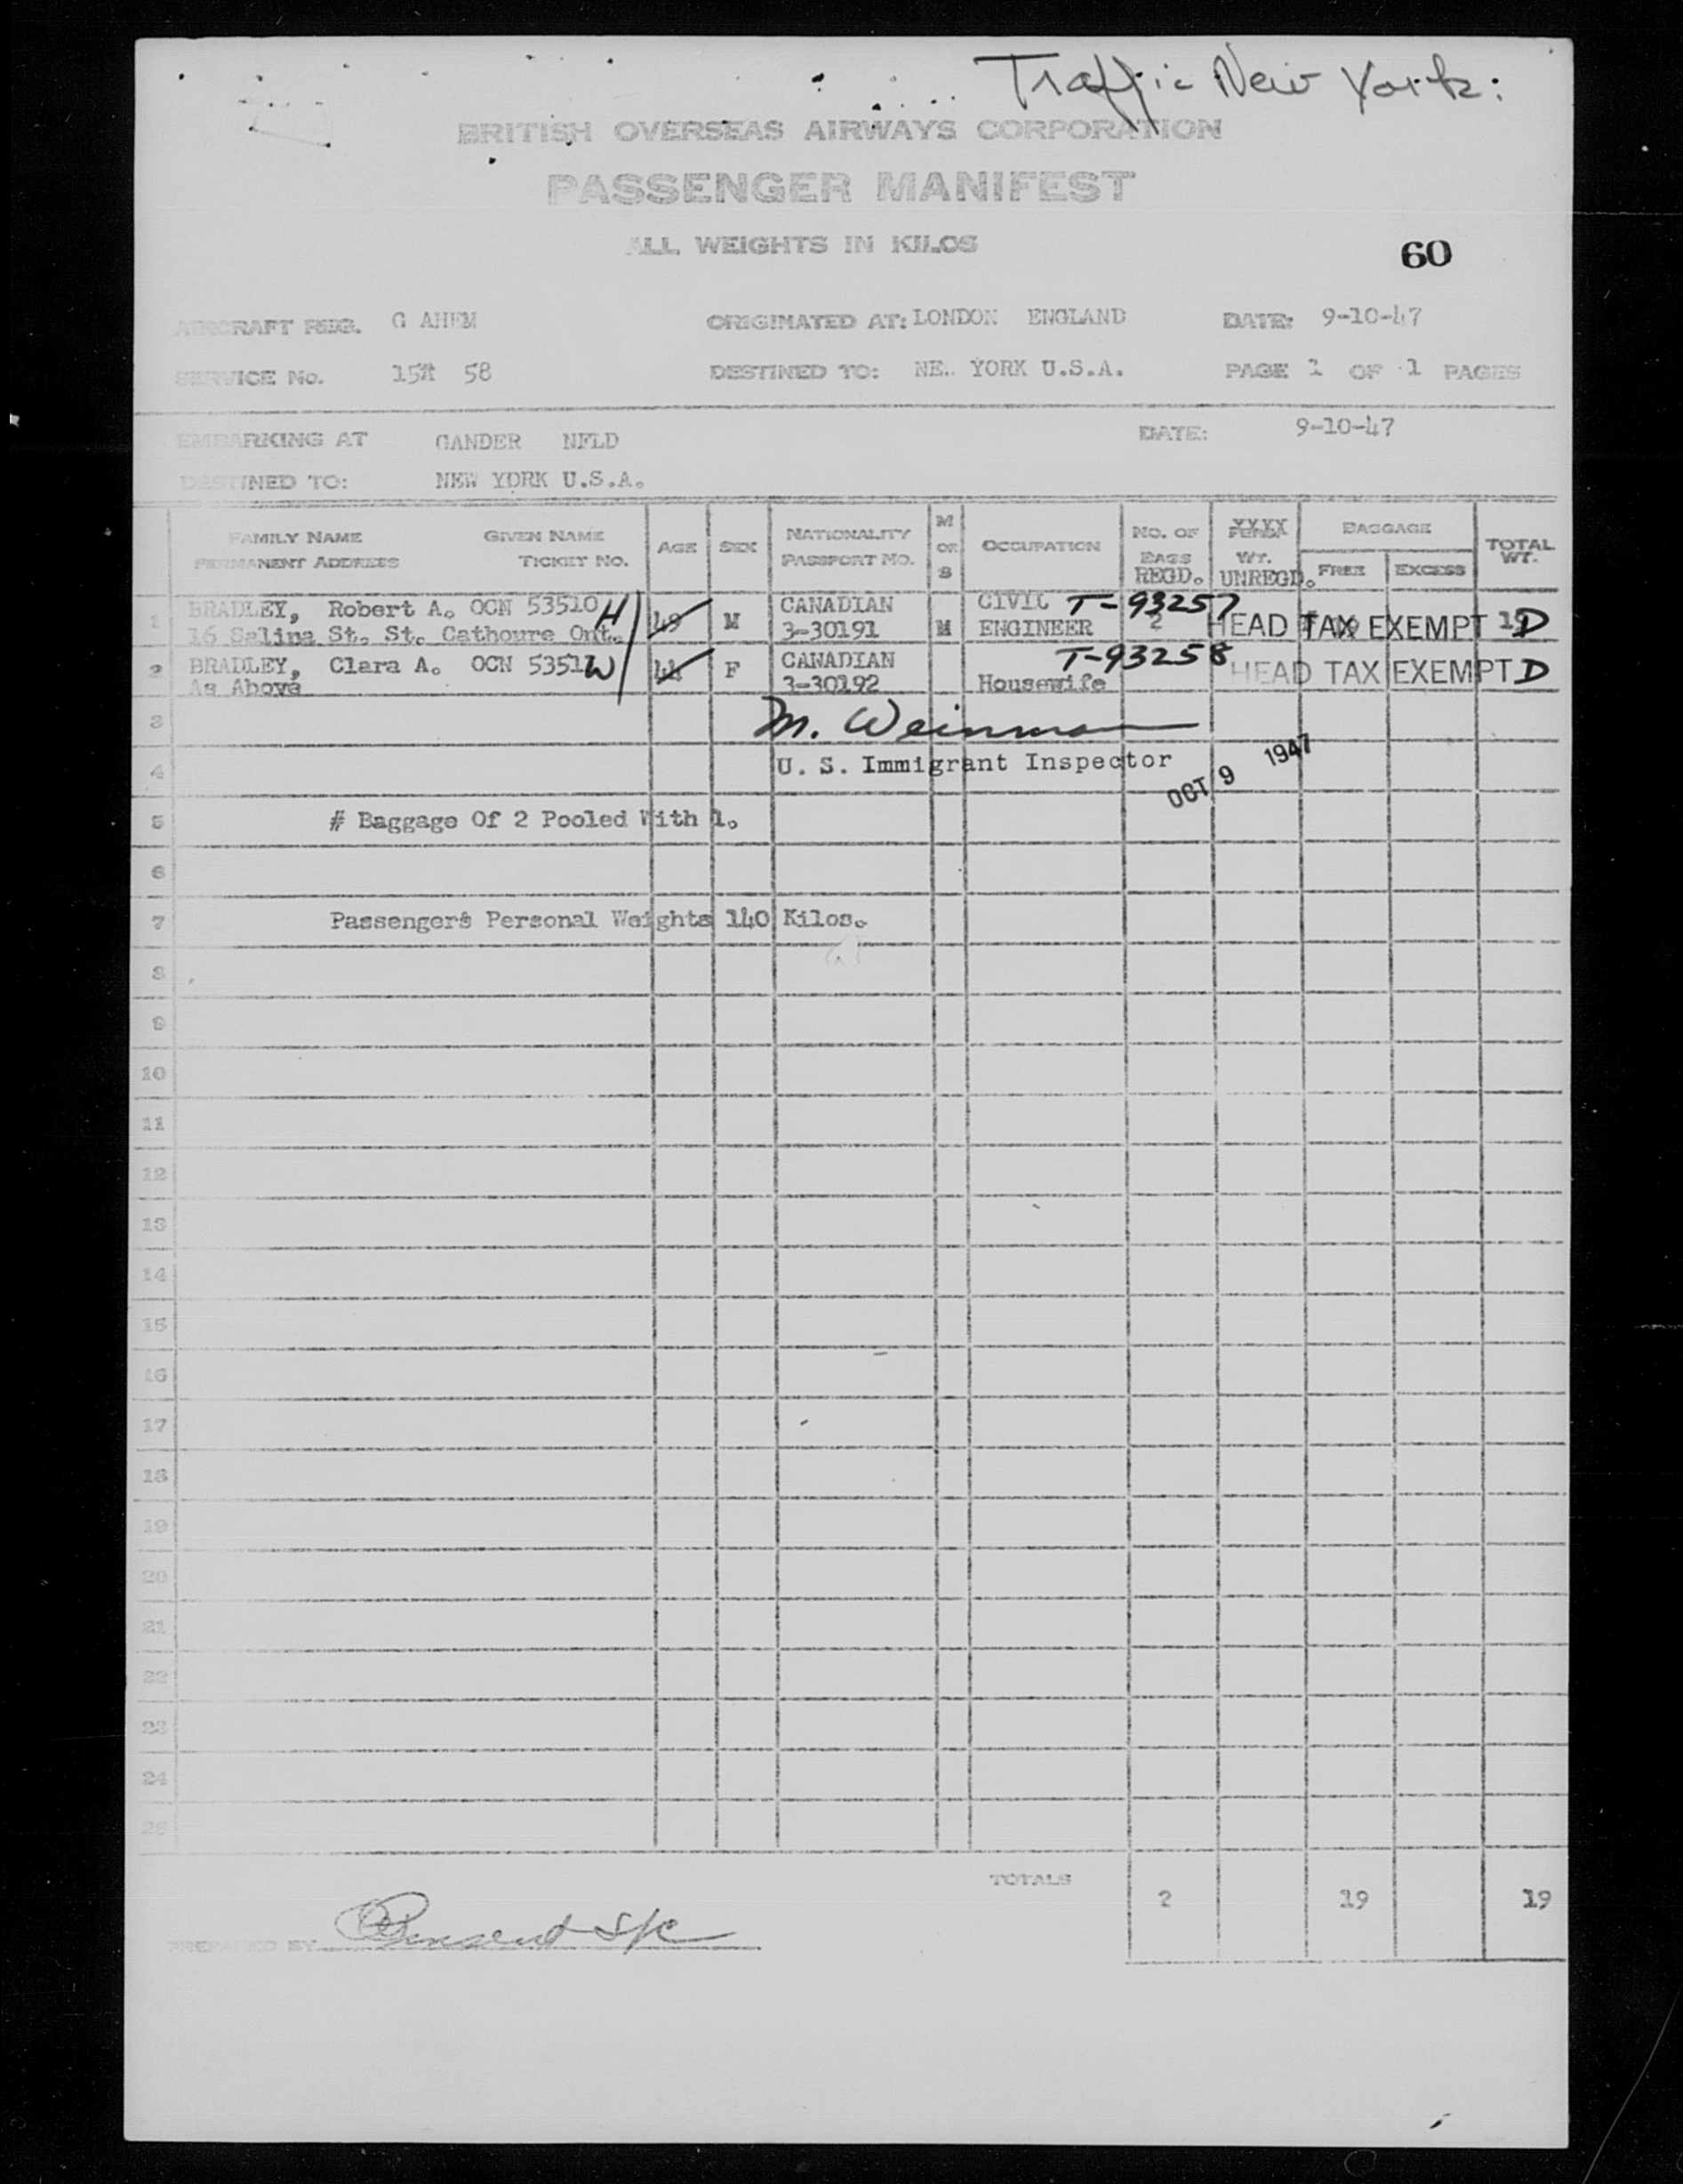 Traffic New York:
BRITISH OVERSEAS AIRWAYS CORPORATION
PASSENGER MANIFEST
ALL WEIGHTS IN KILOS
60
AIRCRAFT REGR. G AHEM ORIGINATED AT: LONDON ENGLAND DATE: 9-10-47
SERVICE No. 58 DESTINED TO: NE. YORK U.S.A. PAGE 1 OF 1 PAGES
EMBARKING AT GANDER NFLD DATE: 9-10-47
DESTINED TO: NEW YORK U.S.A.
FAMILY NAME GIVEN NAME AGE SEX NATIONALITY M OR S OCCUPATION NO. OF BAGS REGD. WT. UNREGD. BAGGAGE TOTAL WT.
PERMANENT ADDRESS TICKET NO. PASSPORT NO. FREE EXCESS
1 BRADLEY, Robert A. OCN 53510 H 49 M CANADIAN M CIVIL T-93257 2 HEAD TAX EXEMPT 19 D
16 Salina St. St. Cathoure Ont. 3-30191 ENGINEER
2 BRADLEY, Clara A. OCN 53511 W 44 F CANADIAN T-93258 HEAD TAX EXEMPT D
As Above 3-30192 Housewife
3 M. Weinman
4 U. S. Immigrant Inspector OCT 9 1947
5 # Baggage Of 2 Pooled With 1.
6
7 Passengers Personal Weights 140 Kilos.
8
9
10
11
12
13
14
15
16
17
18
19
20
21
22
23
24
25
TOTALS 2 19 19
PREPARED BY